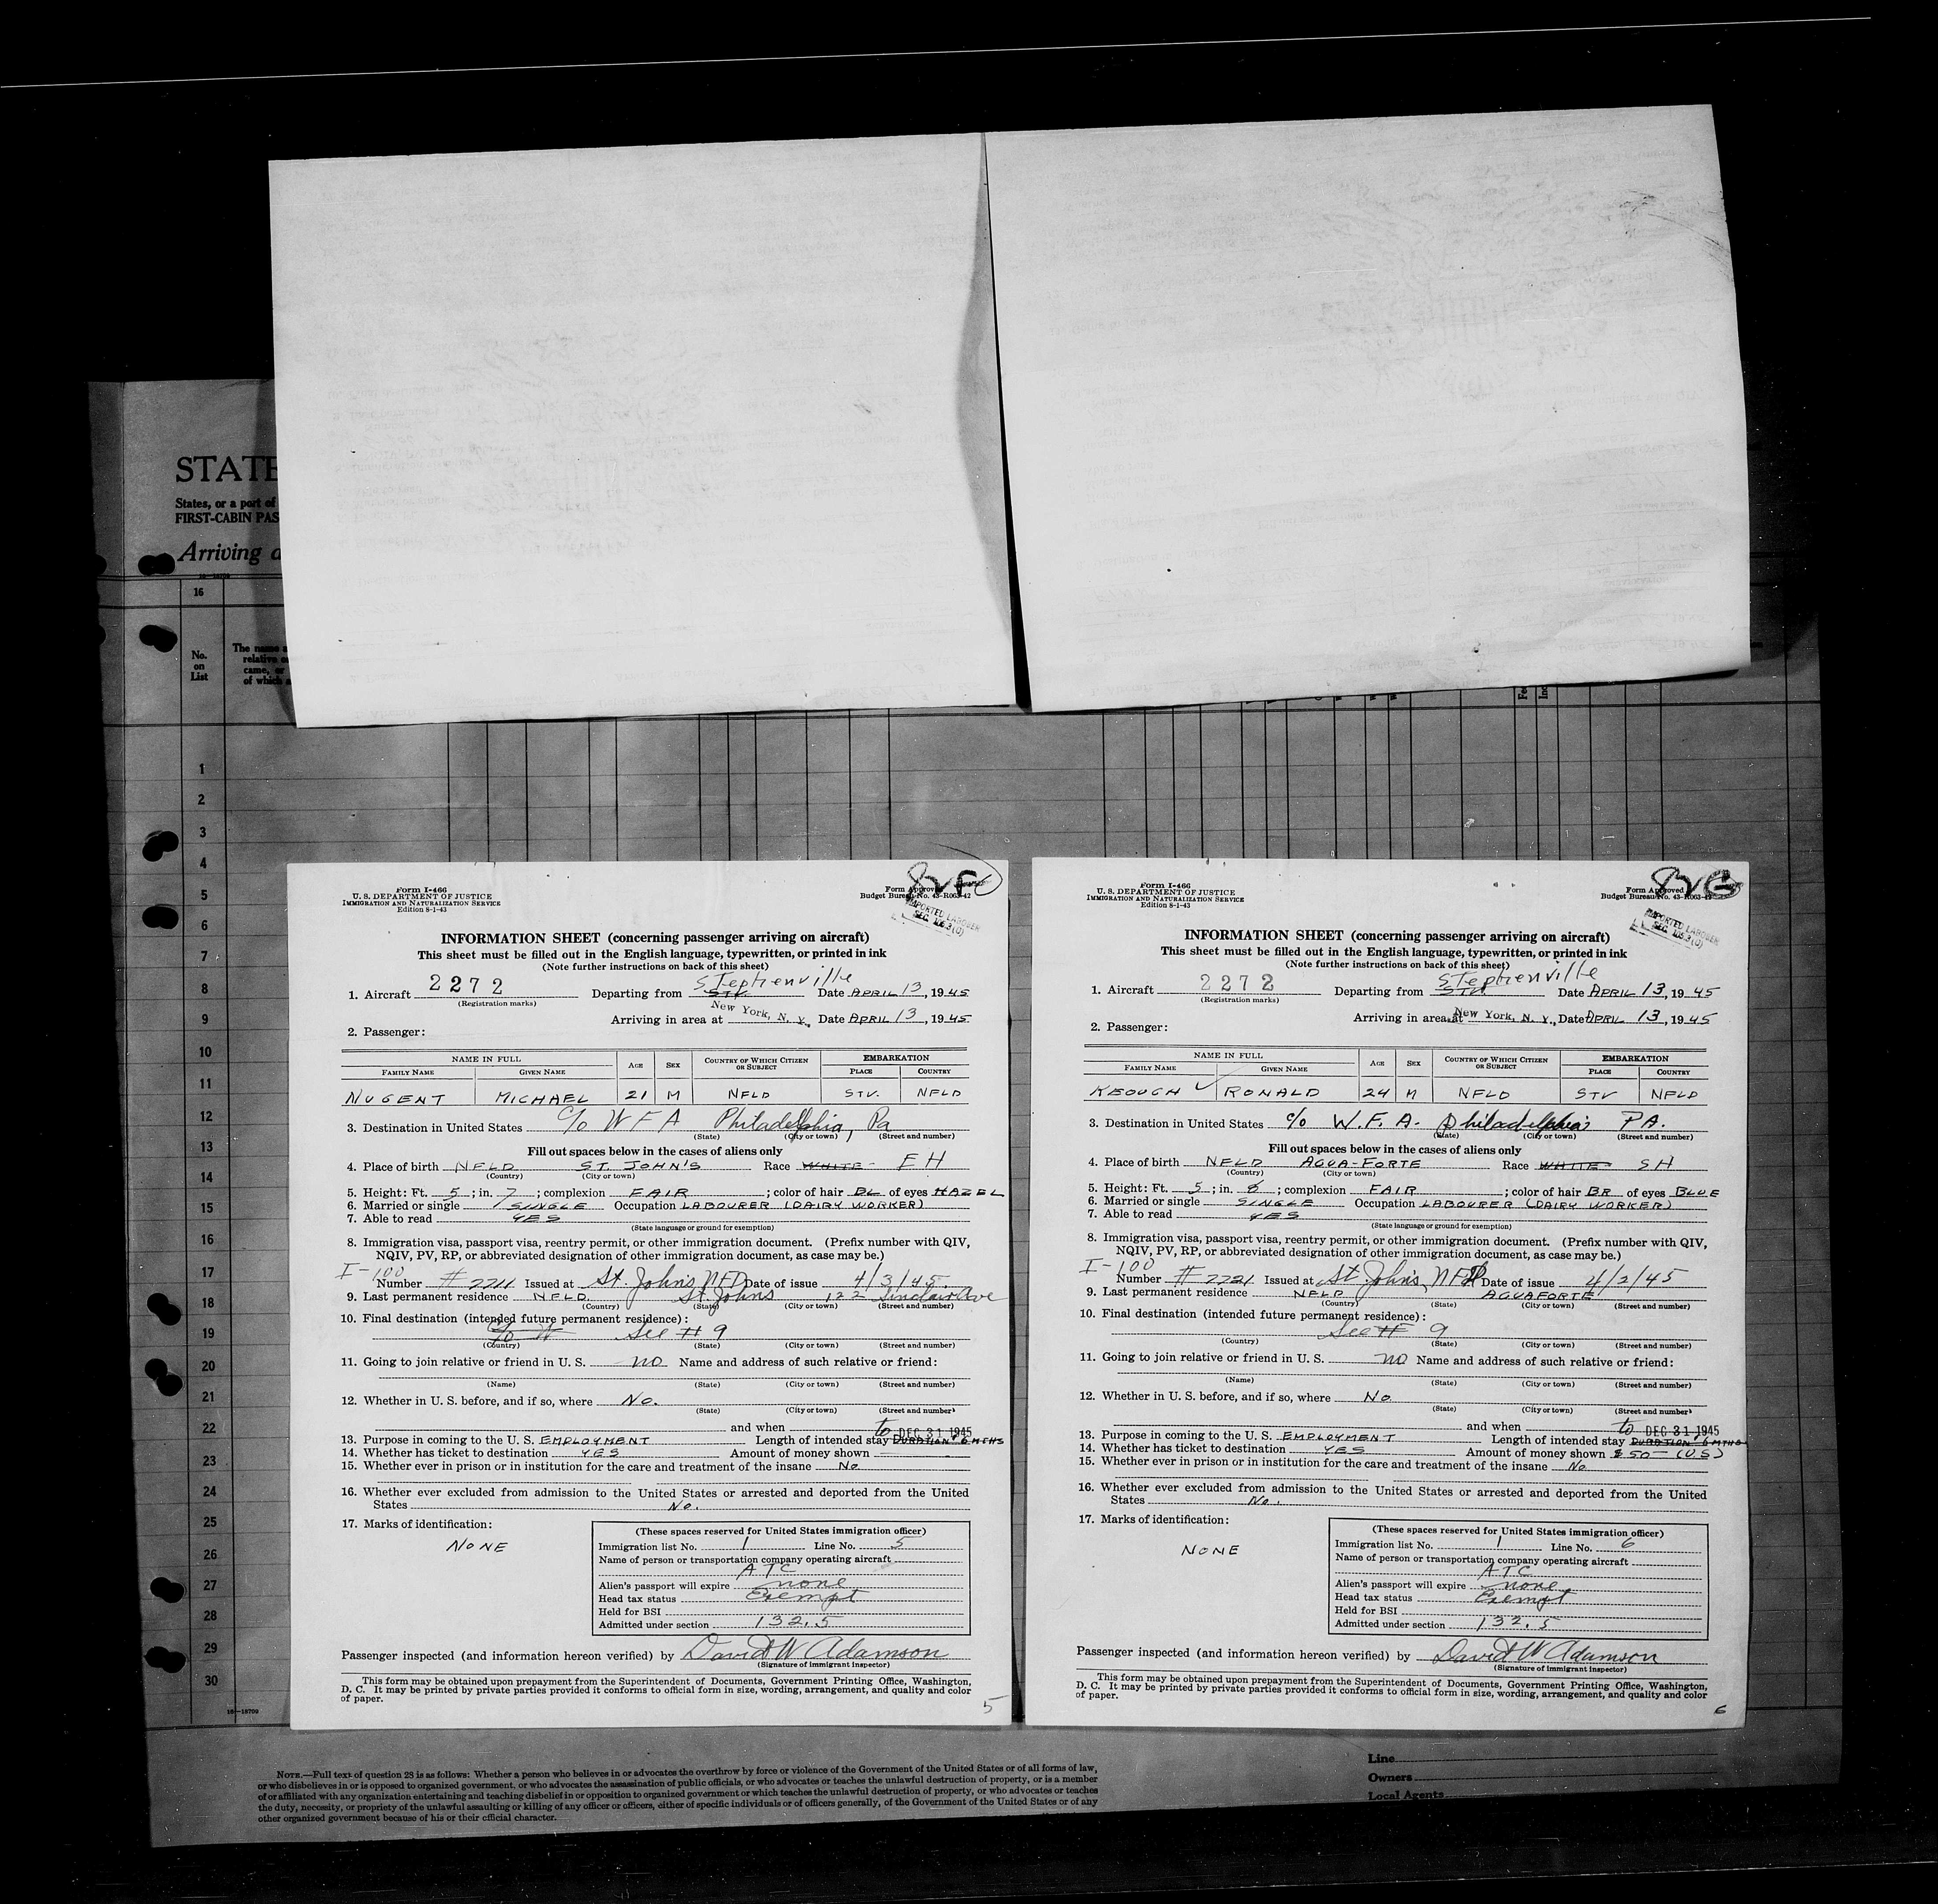 STATE
States, or a port of
FIRST-CABIN PAS
Arriving a
16
No.
on
List
The name
relative
came, or
of which a
1
2
3
4
5
6
7
8
9
10
11
12
13
14
15
16
17
18
19
20
21
22
23
24
25
26
27
28
29
30
Form I-466
U. S. DEPARTMENT OF JUSTICE
IMMIGRATION AND NATURALIZATION SERVICE
Edition 8-1-43
Form Approved
Budget Bureau No. 43-R063-42
IMPORTED LABORER
INFORMATION SHEET (concerning passenger arriving on aircraft)
This sheet must be filled out in the English language, typewritten, or printed in ink
(Note further instructions on back of this sheet)
Stephenville
1. Aircraft 2272 Departing from STV. Date APRIL 13, 1945
(Registration marks)
Arriving in area at New York, N. Y., Date APRIL 13, 1945.
2. Passenger:
NAME IN FULL AGE SEX COUNTRY OF WHICH CITIZEN OR SUBJECT EMBARKATION
FAMILY NAME GIVEN NAME PLACE COUNTRY
NUGENT MICHAEL 21 M NFLD STV. NFLD
3. Destination in United States C/o W F A Philadelphia, Pa
(State) (City or town) (Street and number)
Fill out spaces below in the cases of aliens only
4. Place of birth NFLD ST. JOHN'S Race WHITE EH
(Country) (City or town)
5. Height: Ft. 5; in. 7; complexion FAIR; color of hair BL of eyes HAZEL
6. Married or single SINGLE Occupation LABOURER (DAIRY WORKER)
7. Able to read YES
(State language or ground for exemption)
8. Immigration visa, passport visa, reentry permit, or other immigration document. (Prefix number with QIV,
NQIV, PV, RP, or abbreviated designation of other immigration document, as case may be.)
I-100
Number Issued at St. John's NFD Date of issue 4/3/45.
9. Last permanent residence NFLD. St. Johns 122 Sinclair Ave
(Country) (State) (City or town) (Street and number)
10. Final destination (intended future permanent residence):
See # 9
(Country) (State) (City or town) (Street and number)
11. Going to join relative or friend in U. S. no Name and address of such relative or friend:
(Name) (State) (City or town) (Street and number)
12. Whether in U. S. before, and if so, where No.
(State) (City or town) (Street and number)
and when
to DEC 31 1945
13. Purpose in coming to the U. S. EMPLOYMENT Length of intended stay DURATION & 6 MTHS
14. Whether has ticket to destination YES Amount of money shown
15. Whether ever in prison or in institution for the care and treatment of the insane No
16. Whether ever excluded from admission to the United States or arrested and deported from the United
States No.
17. Marks of identification:
NONE
(These spaces reserved for United States immigration officer)
Immigration list No. 1 Line No. 5
Name of person or transportation company operating aircraft
ATC
Alien's passport will expire none
Head tax status Exempt
Held for BSI
Admitted under section 132.5
Passenger inspected (and information hereon verified) by David W Adamson
(Signature of immigrant inspector)
This form may be obtained upon prepayment from the Superintendent of Documents, Government Printing Office, Washington,
D. C. It may be printed by private parties provided it conforms to official form in size, wording, arrangement, and quality and color
of paper.
5
Form I-466
U. S. DEPARTMENT OF JUSTICE
IMMIGRATION AND NATURALIZATION SERVICE
Edition 8-1-43
Form Approved
Budget Bureau No. 43-R063-42
IMPORTED LABORER
INFORMATION SHEET (concerning passenger arriving on aircraft)
This sheet must be filled out in the English language, typewritten, or printed in ink
(Note further instructions on back of this sheet)
Stephenville
1. Aircraft 2272 Departing from STV. Date APRIL 13, 1945
(Registration marks)
Arriving in area at New York, N. Y., Date APRIL 13, 1945
2. Passenger:
NAME IN FULL AGE SEX COUNTRY OF WHICH CITIZEN OR SUBJECT EMBARKATION
FAMILY NAME GIVEN NAME PLACE COUNTRY
KEOUGH RONALD 24 M NFLD STV NFLD
3. Destination in United States c/o W. F. A. Philadelphia PA.
(State) (City or town) (Street and number)
Fill out spaces below in the cases of aliens only
4. Place of birth NFLD AGUA-FORTE Race WHITE SH
(Country) (City or town)
5. Height: Ft. 5; in. 8; complexion FAIR; color of hair BR of eyes BLUE
6. Married or single SINGLE Occupation LABOURER (DAIRY WORKER)
7. Able to read YES
(State language or ground for exemption)
8. Immigration visa, passport visa, reentry permit, or other immigration document. (Prefix number with QIV,
NQIV, PV, RP, or abbreviated designation of other immigration document, as case may be.)
I-100
Number # 2221 Issued at St. John's, NFD Date of issue 4/2/45
9. Last permanent residence NFLD AGUAFORTE
(Country) (State) (City or town) (Street and number)
10. Final destination (intended future permanent residence):
See # 9
(Country) (State) (City or town) (Street and number)
11. Going to join relative or friend in U. S. no Name and address of such relative or friend:
(Name) (State) (City or town) (Street and number)
12. Whether in U. S. before, and if so, where No
(State) (City or town) (Street and number)
and when
to DEC 31 1945
13. Purpose in coming to the U. S. EMPLOYMENT Length of intended stay DURATION & 6 MTHS
14. Whether has ticket to destination YES Amount of money shown $50— (U.S)
15. Whether ever in prison or in institution for the care and treatment of the insane No
16. Whether ever excluded from admission to the United States or arrested and deported from the United
States No.
17. Marks of identification:
NONE
(These spaces reserved for United States immigration officer)
Immigration list No. 1 Line No. 6
Name of person or transportation company operating aircraft
ATC
Alien's passport will expire none
Head tax status Exempt
Held for BSI
Admitted under section 132.5
Passenger inspected (and information hereon verified) by David W Adamson
(Signature of immigrant inspector)
This form may be obtained upon prepayment from the Superintendent of Documents, Government Printing Office, Washington,
D. C. It may be printed by private parties provided it conforms to official form in size, wording, arrangement, and quality and color
of paper.
6
16—18709
NOTE.—Full text of question 28 is as follows: Whether a person who believes in or advocates the overthrow by force or violence of the Government of the United States or of all forms of law,
or who disbelieves in or is opposed to organized government, or who advocates the assassination of public officials, or who advocates or teaches the unlawful destruction of property, or is a member
of or affiliated with any organization entertaining and teaching disbelief in or opposition to organized government or which teaches the unlawful destruction of property, or who advocates or teaches
the duty, necessity, or propriety of the unlawful assaulting or killing of any officer or officers, either of specific individuals or of officers generally, of the Government of the United States or of any
other organized government because of his or their official character.
Line
Owners
Local Agents